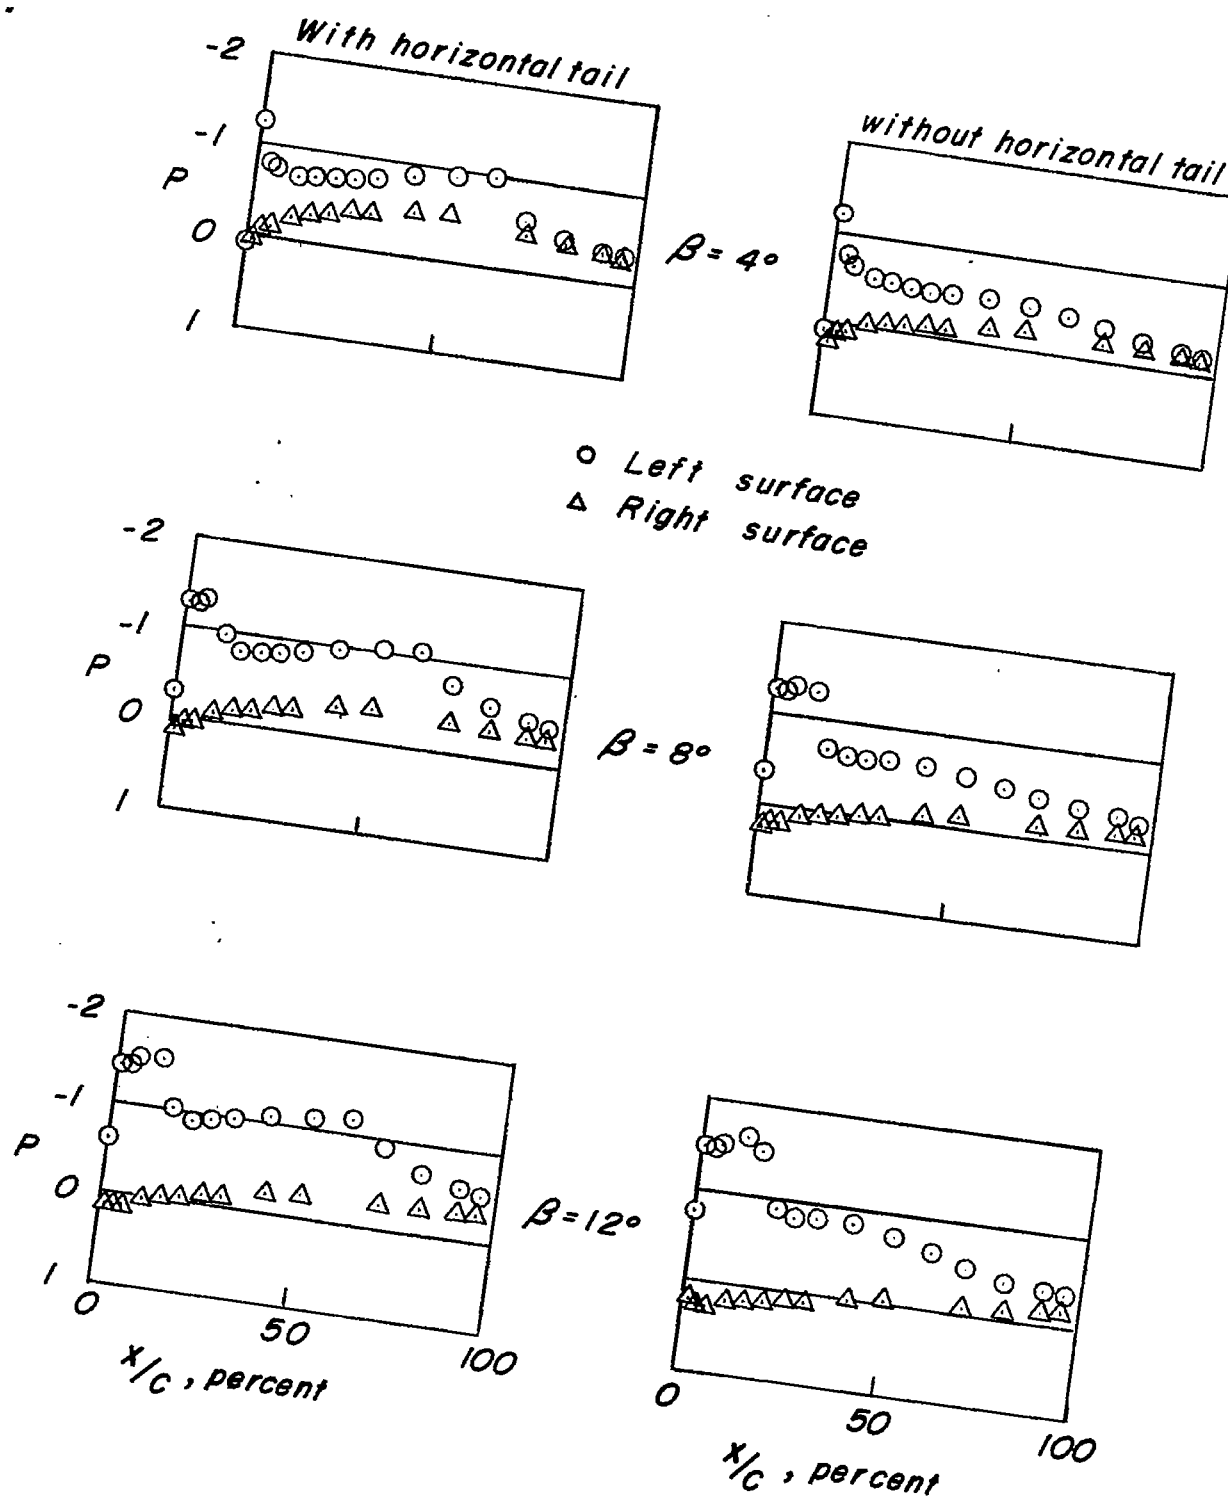 With horizontal tail
without horizontal tail
-2
-1
P
0
1
β = 4°
○ Left surface
△ Right surface
-2
-1
P
0
1
β = 8°
-2
-1
P
0
1
β = 12°
0
50
100
x/c, percent
0
50
100
x/c, percent